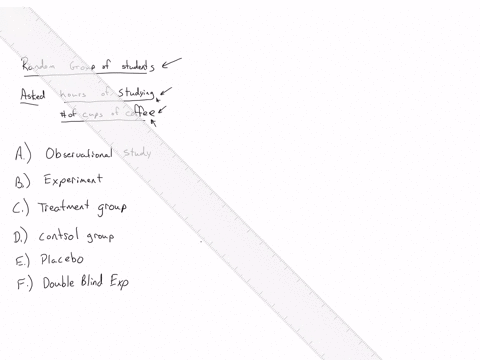 Random Group of students
Asked hours of studying
# of cups of coffee
A.) Observational study
B.) Experiment
C.) Treatment group
D.) Control group
E.) Placebo
F.) Double Blind Exp